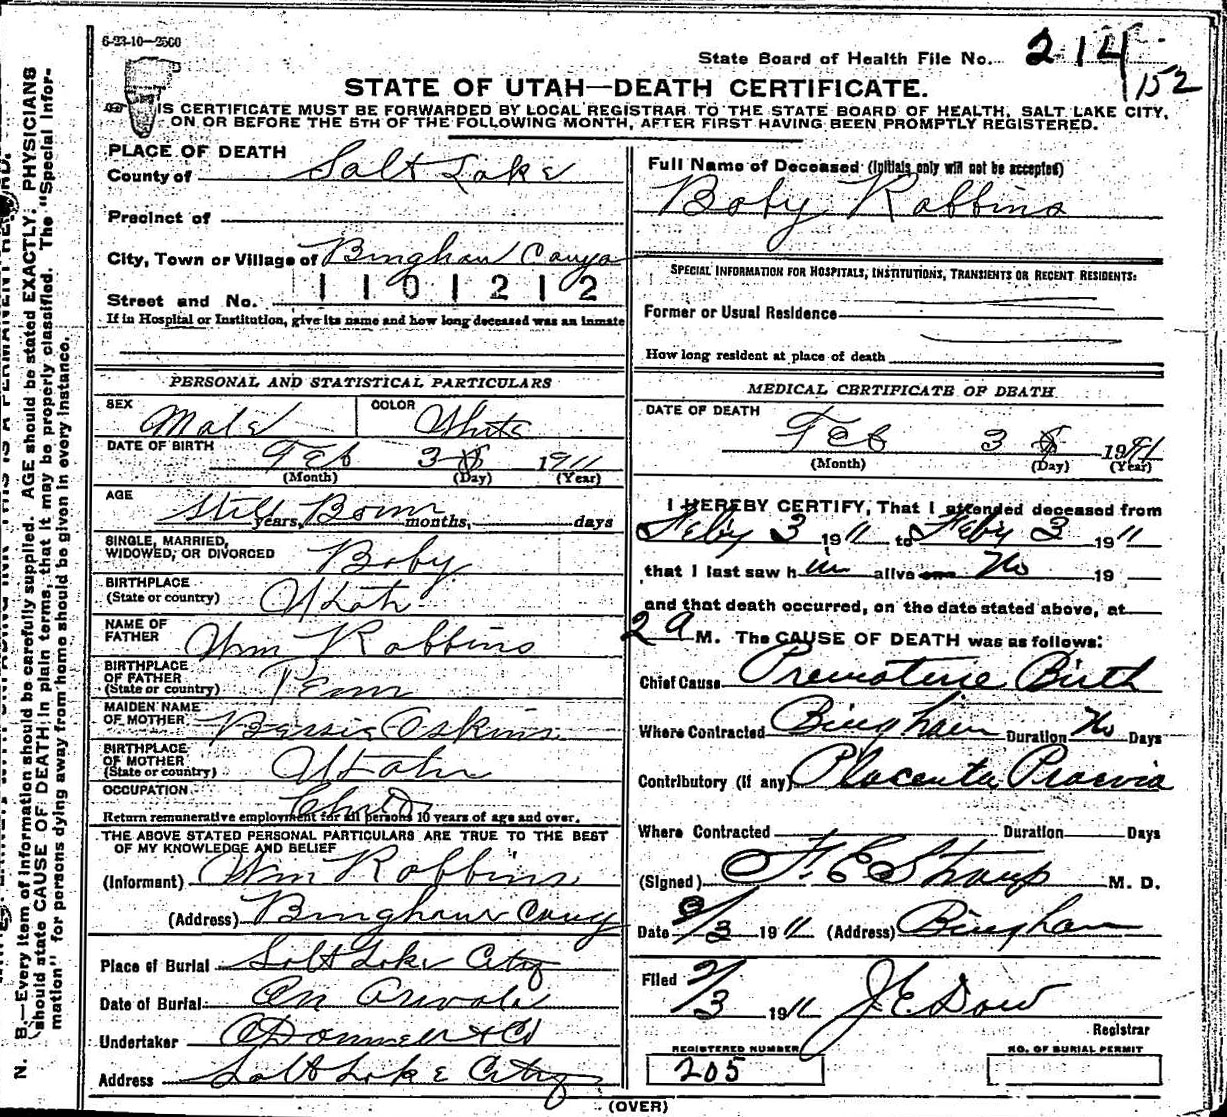 6-23-10—2500
State Board of Health File No. 214
152
STATE OF UTAH—DEATH CERTIFICATE.
IS CERTIFICATE MUST BE FORWARDED BY LOCAL REGISTRAR TO THE STATE BOARD OF HEALTH, SALT LAKE CITY,
ON OR BEFORE THE 5TH OF THE FOLLOWING MONTH, AFTER FIRST HAVING BEEN PROMPTLY REGISTERED.
PLACE OF DEATH
County of Salt Lake
Precinct of
City, Town or Village of Bingham Canyo
1101212
Street and No.
If in Hospital or Institution, give its name and how long deceased was an inmate
PERSONAL AND STATISTICAL PARTICULARS
SEX Male COLOR White
DATE OF BIRTH Feb 3 1911
(Month) (Day) (Year)
AGE Still Born
years, months, days
SINGLE, MARRIED,
WIDOWED, OR DIVORCED Baby
BIRTHPLACE
(State or country) Utah
NAME OF
FATHER Wm Robbins
BIRTHPLACE
OF FATHER
(State or country) Penn
MAIDEN NAME
OF MOTHER Bessie Oskins
BIRTHPLACE
OF MOTHER
(State or country) Utah
OCCUPATION Child
Return remunerative employment for all persons 10 years of age and over.
THE ABOVE STATED PERSONAL PARTICULARS ARE TRUE TO THE BEST
OF MY KNOWLEDGE AND BELIEF
(Informant) Wm Robbins
(Address) Bingham Cany
Place of Burial Salt Lake City
Date of Burial On Arival
Undertaker O'Donnell & Co
Address Salt Lake City
Full Name of Deceased (Initials only will not be accepted)
Baby Robbins
SPECIAL INFORMATION FOR HOSPITALS, INSTITUTIONS, TRANSIENTS OR RECENT RESIDENTS:
Former or Usual Residence
How long resident at place of death
MEDICAL CERTIFICATE OF DEATH
DATE OF DEATH
Feb 3 1911
(Month) (Day) (Year)
I HEREBY CERTIFY, That I attended deceased from
Feby 3 1911 to Feby 3 1911
that I last saw him alive on No 19
and that death occurred, on the date stated above, at
2 a M. The CAUSE OF DEATH was as follows:
Chief Cause Premature Birth
Where Contracted Bingham Duration No Days
Contributory (if any) Placenta Praevia
Where Contracted Duration Days
(Signed) F. E. Straup M. D.
Date 2/3 1911 (Address) Bingham
Filed 2/3 1911 J E Dow
Registrar
REGISTERED NUMBER
205
NO. OF BURIAL PERMIT
(OVER)
N. B.—Every item of information should be carefully supplied. AGE should be stated EXACTLY. PHYSICIANS
should state CAUSE OF DEATH in plain terms, that it may be properly classified. The "Special Infor-
mation" for persons dying away from home should be given in every instance.